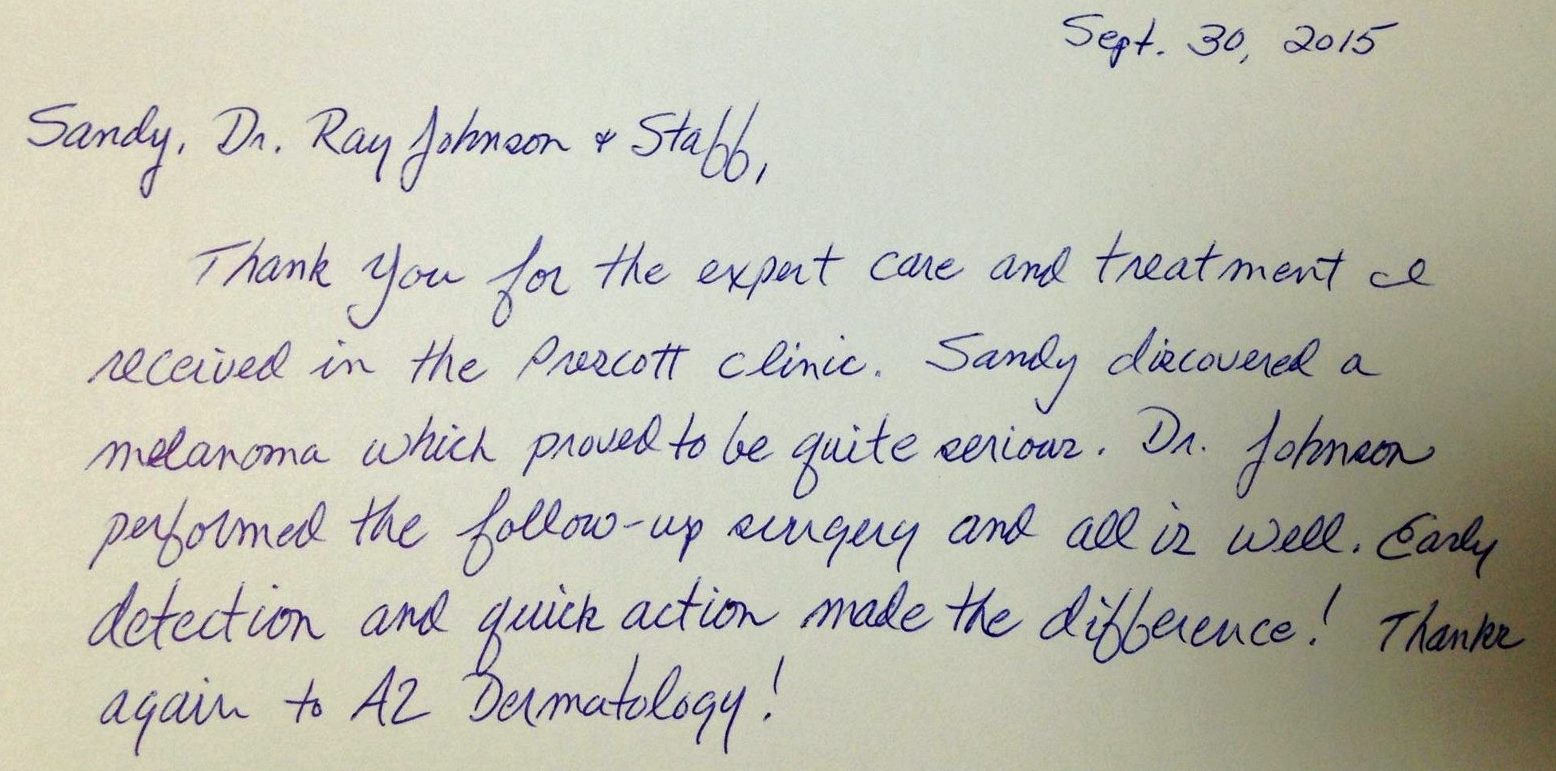 Sept. 30, 2015
Sandy, Dr. Ray Johnson & Staff,
Thank you for the expert care and treatment I
received in the Prescott clinic. Sandy discovered a
melanoma which proved to be quite serious. Dr. Johnson
performed the follow-up surgery and all is well. Early
detection and quick action made the difference! Thanks
again to AZ Dermatology!